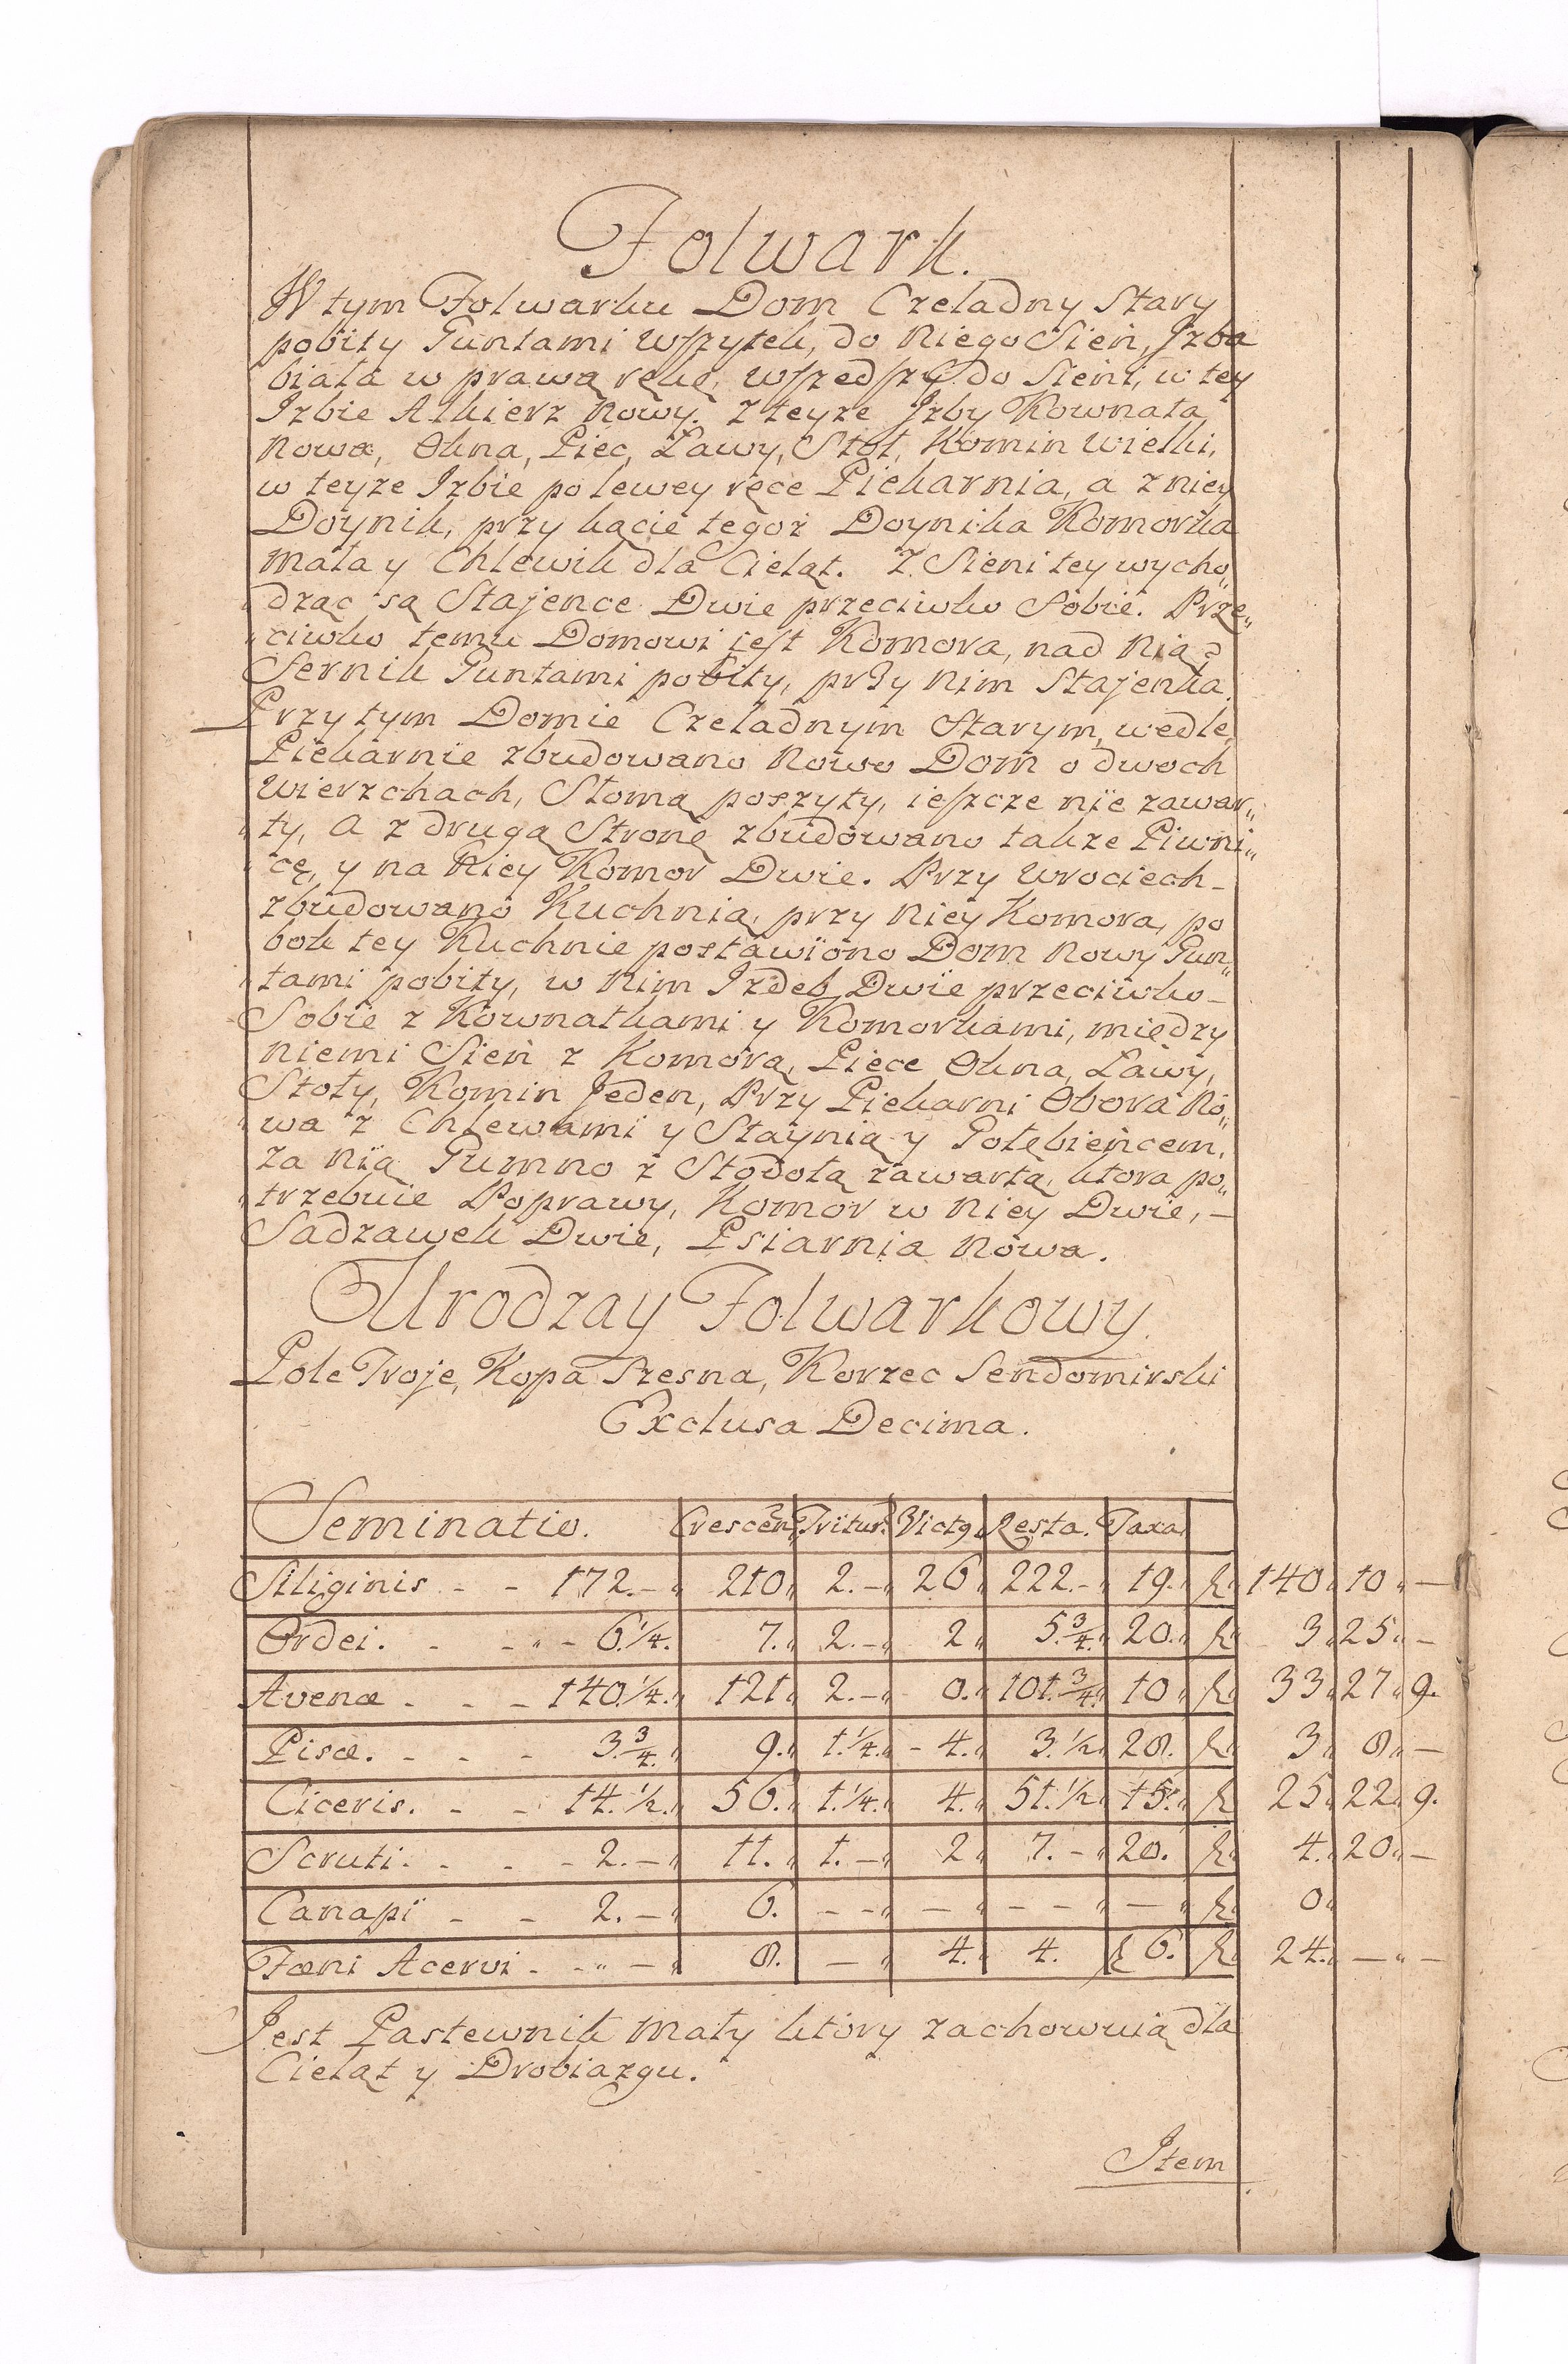 Folwark.
W tym Folwarku Dom Czeladny Stary
pobity Guntami wszytek, do niego Sień, Jzba
biała w prawą rękę, wszedszÿ do Sieni, w tey
Izbie Alkierz nowy. z teyze Jzby Kownata
nowa, Okna, Piec, Ławy, Stoł, Komin wielki,
w teyze Izbie po lewey ręce Piekarnia, a z niey
Doynik, przy kącie tegoż Doynika Komorka
mała y Chlewik dla Cieląt. Z Sieni tey wycho„
dząc są Stajence Dwie przeciwko Sobie. Prze„
„ciwko temu Domowi jest Komora, nad nią
Sernik Guntami pobity, przy nim Stajenka
Przy tym Domie Czeladnym Starym, wedle
Piekarnie zbudowano nowo Dom o dwoch
wierzchach, Słomą poszyty, ieszcze nie zawar„
„ty, a z drugą Stronę zbudowano także Piwni„
„cę, y na niey Komor Dwie. Przy Wrociech –
zbudowano Kuchnią, przy niey Komora, po
bok tey Kuchnie postawiono Dom nowy Gun„
„tami pobity, w nim Izdeb Dwie przeciwko –
Sobie z Kownatkami y Komorkami, między
niemi Sień z Komorą, Piece Okna, Ławy,
Stoły, Komin Jeden, Przy Piekarni Obora no„
„wa z Chlewami y Staynią y Gołębieńcem,
za nią Gumno z Stodołą zawartą, ktora po„
„trzebuie Poprawy, Komor w niey Dwie, –
Sadzawek Dwie, Psiarnia nowa.
Urodzay Folwarkowy.
Pole Troje, Kopa Szesna, Korzec Sendomirski
Exclusa Decima.
Seminatio. Crescen. Tritur. Victg. Resta. Taxa
Siliginis - - 172. – „ 210 „ 2. – „ 26 „ 222. – „ 19. „ 140 „ 10 „ –
Ordei. - - „ - 6. 1/4. 7. „ 2. – „ 2 „ 5. 3/4. „ 20. „ 3 „ 25 „ –
Avenæ - - - 140. 1/4. „ 121 „ 2. – „ 8. „ 101. 3/4. „ 10 „ 33 „ 27 „ 9.
Pisæ. - - - 3. 3/4. „ 9. „ 1. 1/4. „ - 4. „ 3. 1/2 „ 28. 3 „ 8 „ –
Ciceris. - - 14. 1/2. „ 56. „ 1. 1/4. „ 4. „ 51. 1/2 „ 15. „ 25 „ 22 „ 9.
Scruti. - - - 2. – „ 11. „ 1. – „ 2 „ 7. - „ 20. 4. „ 20 „ –
Canapi - - 2. – „ 6. – – „ – „ – – „ – „ 0 „
Fœni Acervi - - „ – „ 8. – „ 4. „ 4. 6. 24. „ – „ –
Jest Pastewnik mały ktory zachowuią dla
Cieląt y Drobiazgu.
Item